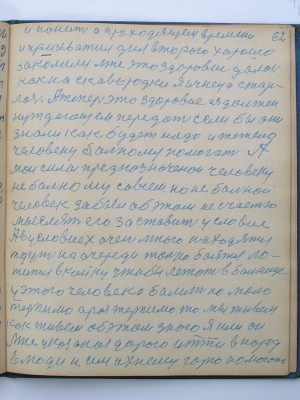 и помит а проходящем времено 62
и прихватил для второго хорошо
закомили мне это здоровие далос
как на скавырюдки яичнеца стар-
лас. А теперь это здоровие я должен
нуждающем передат если бы они
знали как будет надо и тяжело
человеку больному помогат А
мои силы предназначеной человеку
не больному совсем но не больной
человек забыл об этом не счастю
мыслеят его заставит условие
А в условиех очен много находятся
ждут но очереди только боятся ло-
житца в койку чтобы лежат в больнице
у этого человека болит но мало
терпимо а раз терпимо то мы живем
как живем об этом знаю я или он
мне указаная дорога итти в народ
в люди и им ихнему горю помогат